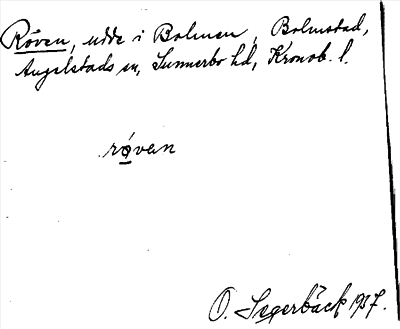 Röven, udde i Bolmen, Bolmstad,
Angelstads sn, Sunnerbo hd, Kronob. l.
røven
O. Segerbäck 1937.